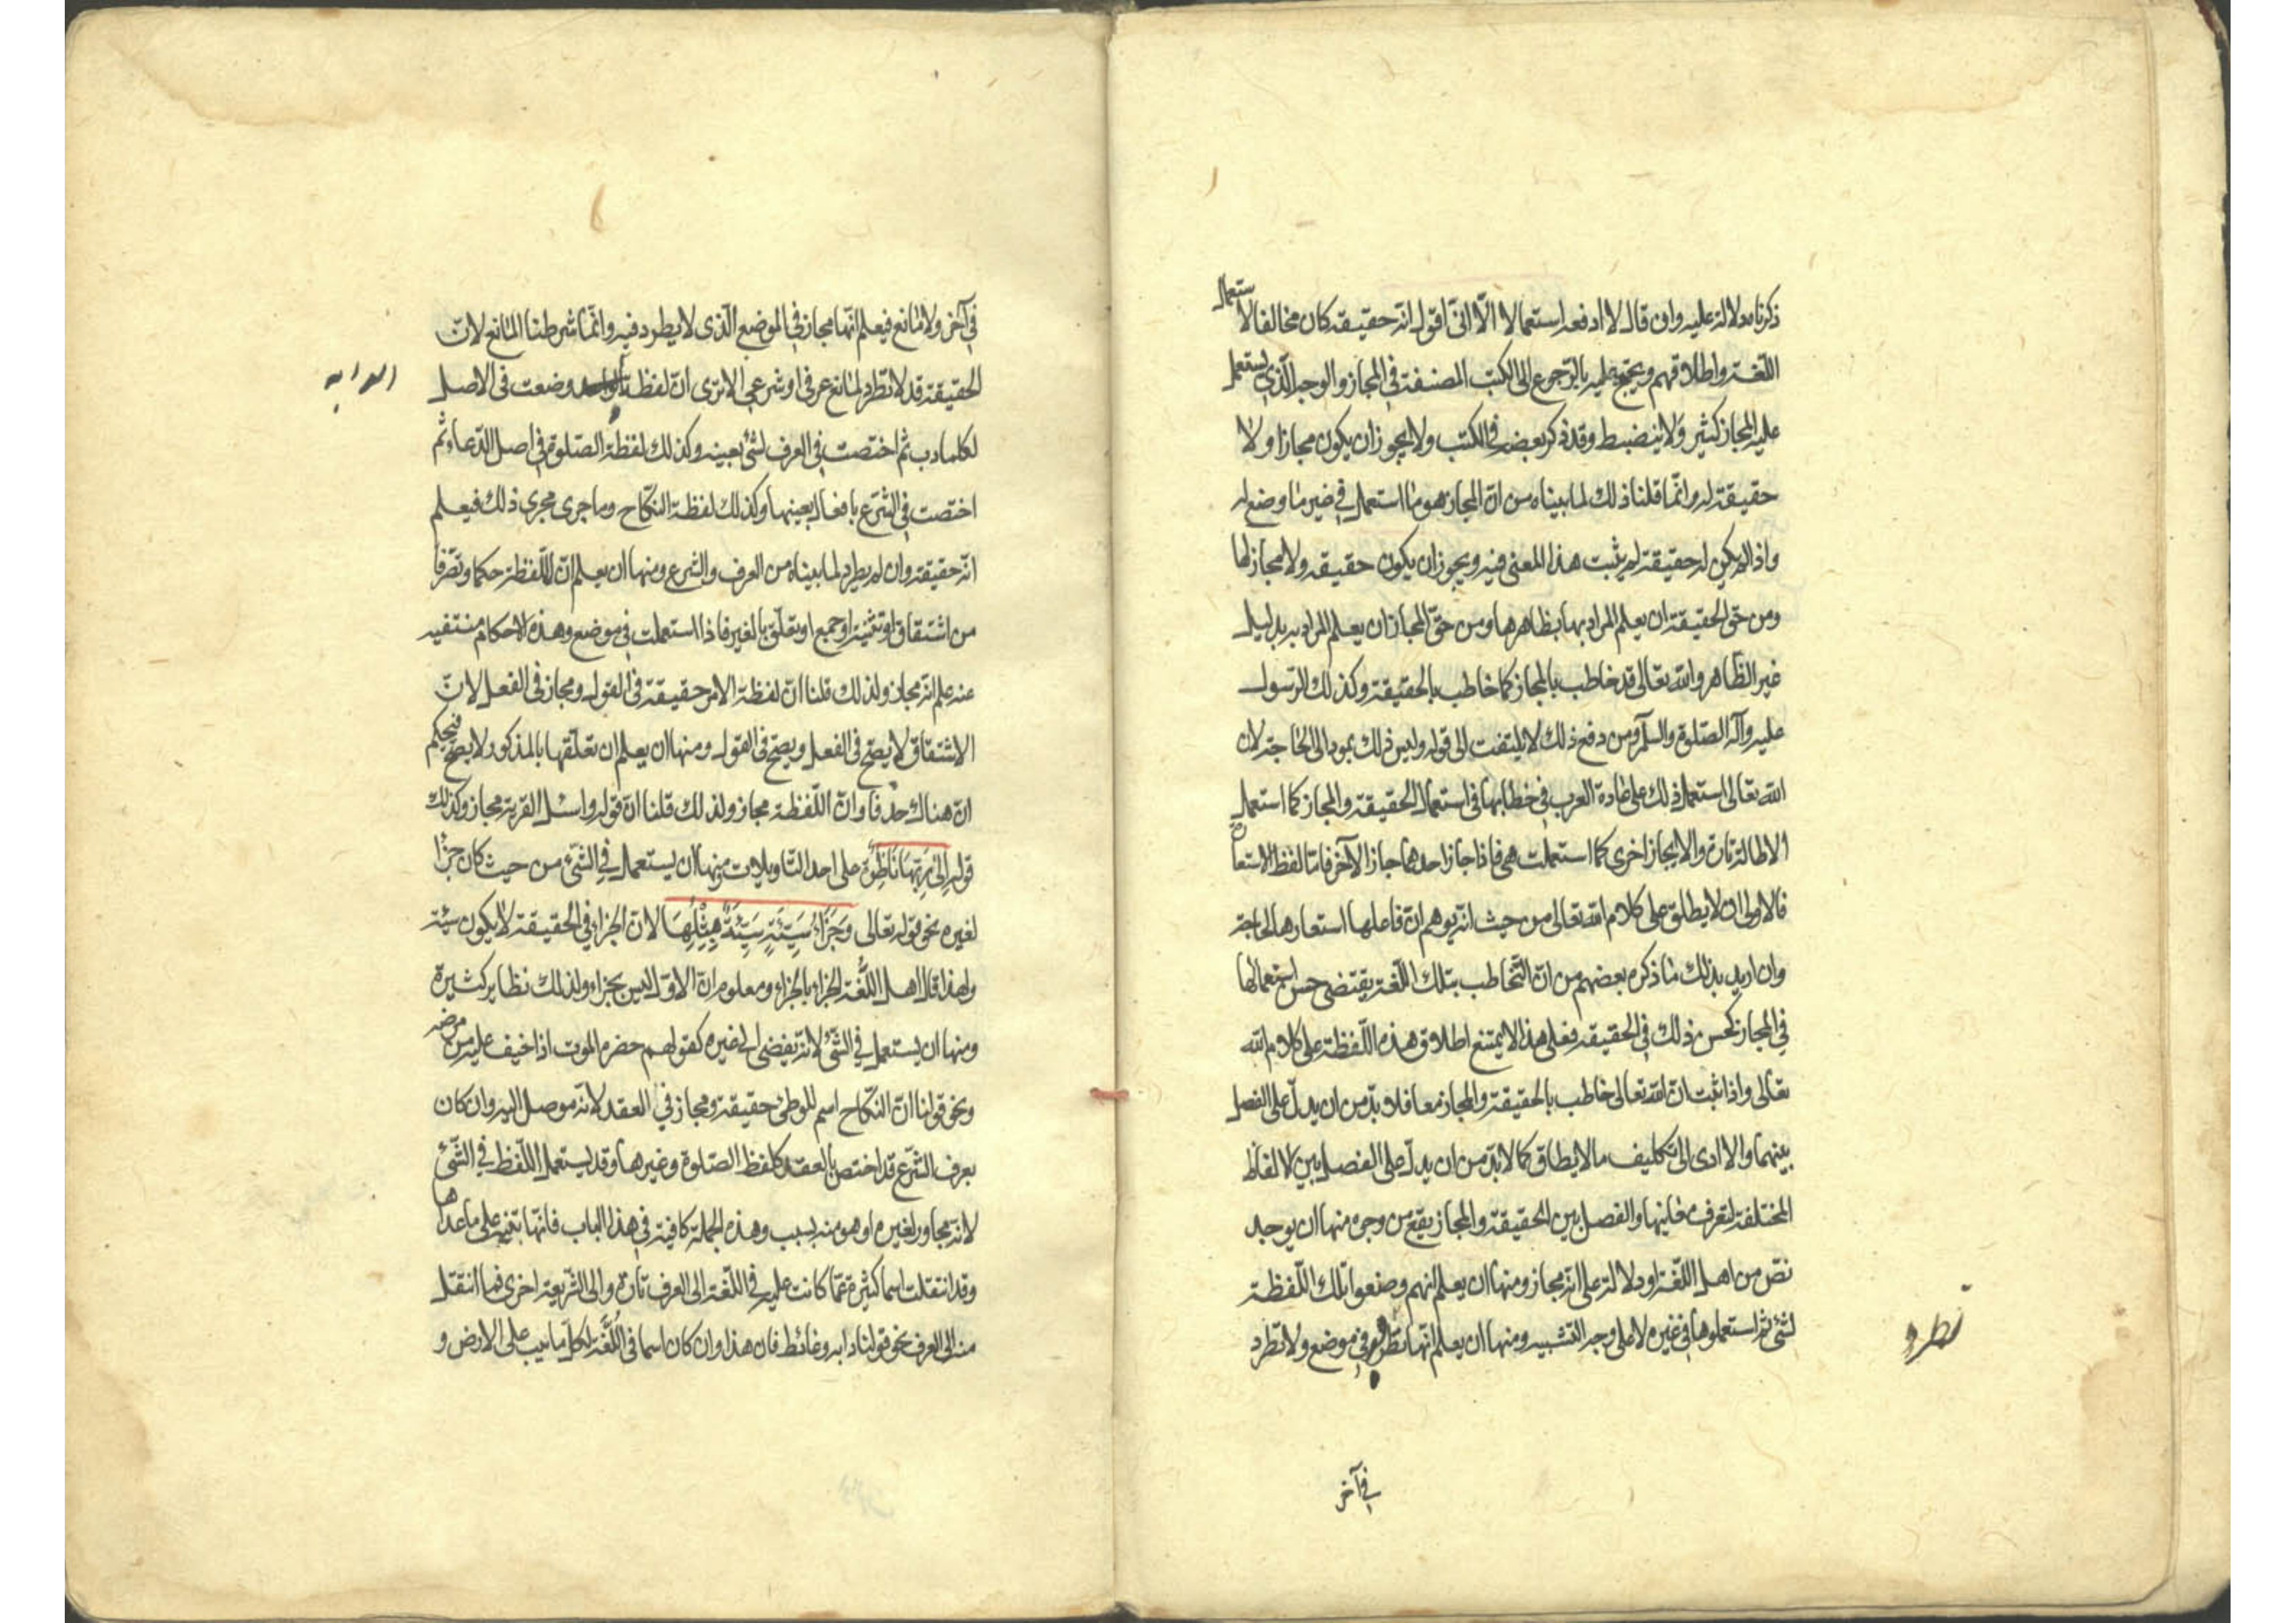 ذكرناه دلالة عليه وان قال لا ادفعه استعمالا الّا انّى اقول انّه حقيقة كان مخالفا لاستعمال
اللّغة واطلاقهم ويحتج عليه بالرّجوع الى الكتب المصنفة فى المجاز والوجه الّذى يستعمل
عليه المجاز كثير ولا ينضبط وقد ذكر بعضه فى الكتب ولا يجوز ان يكون مجازا ولا
حقيقة له وانّما قلنا ذلك لما بيناه من انّ المجاز هو ما استعمل فى غير ما وضع له
واذا لم يكن له حقيقة لم يثبت هذا المعنى فيه ويجوز ان يكون حقيقة ولا مجاز لها
ومن حق الحقيقة ان يعلم المراد بها بظاهرها ومن حقّ المجاز ان يعلم المراد به بدليل
غير الظّاهر والله تعالى قد خاطب بالمجاز كما خاطب بالحقيقة وكذلك الرّسول
عليه وآله الصّلوة والسلّم ومن دفع ذلك لا يلتفت الى قوله وليس ذلك بمود الى الحاجة لان
الله تعالى استعمل ذلك على عادة العرب فى خطابها فى استعمال الحقيقة والمجاز كما استعمل
الاطالة تارة والايجاز اخرى كما استعملت هى فاذا جاز احدهما جاز الآخر فامّا لفظ الاستعارة
فالاولى ان لا يطلق على كلام الله تعالى من حيث انّه يوهم انّ فاعلها استعارها لحاجة
وان اريد بذلك ما ذكره بعضهم من انّ التّخاطب بتلك اللّغة يقتضى حسن استعمالها
فى المجاز كحسن ذلك فى الحقيقة فعلى هذا لا يمتنع اطلاق هذه اللّفظة على كلام الله
تعالى واذا ثبت انّ الله تعالى خاطب بالحقيقة والمجاز معا فلا بدّ من ان يدلّ على الفصل
بينهما والا ادى الى تكليف ما لا يطاق كما لا بدّ من ان يدلّ على الفصل بين الالفاظ
المختلفة لتعرف معانيها والفصل بين الحقيقة والمجاز يقع من وجوه منها ان يوجد
نصّ من اهل اللّغة او دلالة على انّه مجاز ومنها ان يعلم انهم وضعوا تلك اللّفظة
لشئ ثم استعملوها فى غيره لا على وجه التشبيه ومنها ان يعلم انّها تطرد فى موضع ولا تطرد
تطرد
فى آخر
فى آخر ولا مانع فيعلم انّها مجاز فى الموضع الّذى لا يطرد فيه وانّما شرطنا المانع لانّ
الحقيقة قد لا تطّرد لمانع عرفى او شرعى الا ترى انّ لفظة وضعت فى الاصل
الدابه
لكلما دب ثم اختصت فى العرف لشئ بعينه وكذلك لفظة الصّلوة فى اصل الدّعاء ثم
اختصت فى الشّرع بافعال بعينها وكذلك لفظة النّكاح وما جرى مجرى ذلك فيعلم
انّه حقيقة وان لم يطرد لما بيناه من العرف والشرع ومنها ان يعلم انّ للّفظة حكما وتصّرفا
من اشتقاق او تثنية او جميع او تعلّق بالغير فاذا استعملت فى موضع وهذه الاحكام منتفيه
عنه علم انّه مجاز ولذلك قلنا انّ لفظة الامر حقيقة فى القول ومجاز فى الفعل لانّ
الاشتقاق لا يصّح فى الفعل ويصّح فى القول ومنها ان يعلم ان تعلّقها بالمذكور لا يصحّ فيحكم
انّ هناك حذفا وانّ اللّفظة مجاز ولذلك قلنا انّ قوله واسئل القرية مجاز وكذلك
قوله اِلىٰ رَبِّهَا نَاظِرَةٌ على احد التّاويلات ومنها ان يستعمل فى الشّئ من حيث كان جزٓاء
لغيره نحو قوله تعالى وَجَزَآءُ سَيِّئَةٍ سَيِّئَةٌ مِثْلُهَا لانّ الجزاء فى الحقيقة لا يكون سيئة
ولهذا قال اهل اللُّغة الجزاء بالجزاء ومعلوم انّ الاوّل ليس بجزاء ولذلك نظاير كثيرة
ومنها ان يستعمل فى الشّئ لانّه يفضى الى غيره كقولهم حضره الموت اذا خيف عليه من مرضه
ونحو قولنا انّ النّكاح اسم للوطئ حقيقة ومجاز فى العقد لانّه موصل اليه وان كان
بعرف الشّرع قد اختص بالعقد كلفظ الصّلوة وغيرها وقد يستعمل اللّفظ فى الشّئ
لانّه مجاور لغيره او هو منه بسبب وهذه الجملة كافية فى هذا الباب فانّها تنبه على ما عداها
وقد انتقلت اسما كثيرة عمّا كانت عليه فى اللّغة الى العرف تارة والى الشّريعة اخرى فما انتقل
منه الى العرف نحو قولنا دابه وغائط فان هذا وان كان اسما فى اللُّغة لكلّ ما يدب على الارض و